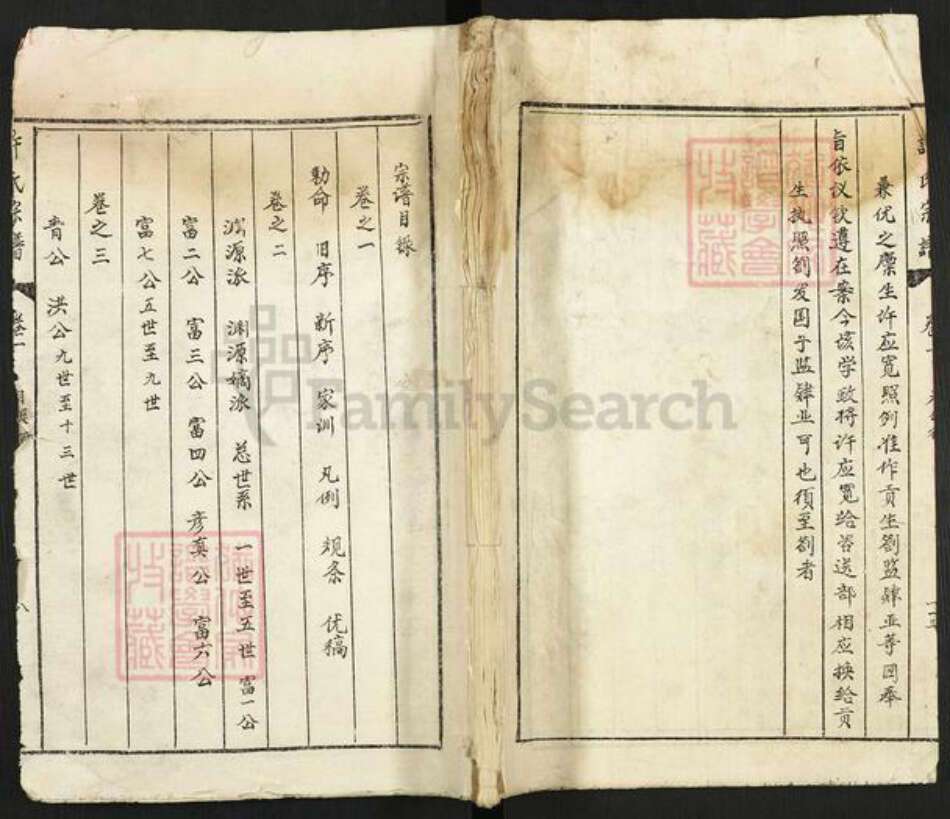 兼优之廪生许应宽照例准作贡生劄监肄业等因奉
旨依议钦遵在案今该学政将许应宽给咨送部相应换给贡
生执照劄发国子监肄业可也须至劄者
宗谱目录
卷之一
勅命 旧序 新序 家训 凡例 规条 优稿
卷之二
渊源派 渊源嫡派 总世系 一世至五世 富一公
富二公 富三公 富四公 彦真公 富六公
富七公五世至九世
卷之三
青公 洪公九世至十三世
许氏宗谱 卷一 目录 八
FamilySearch